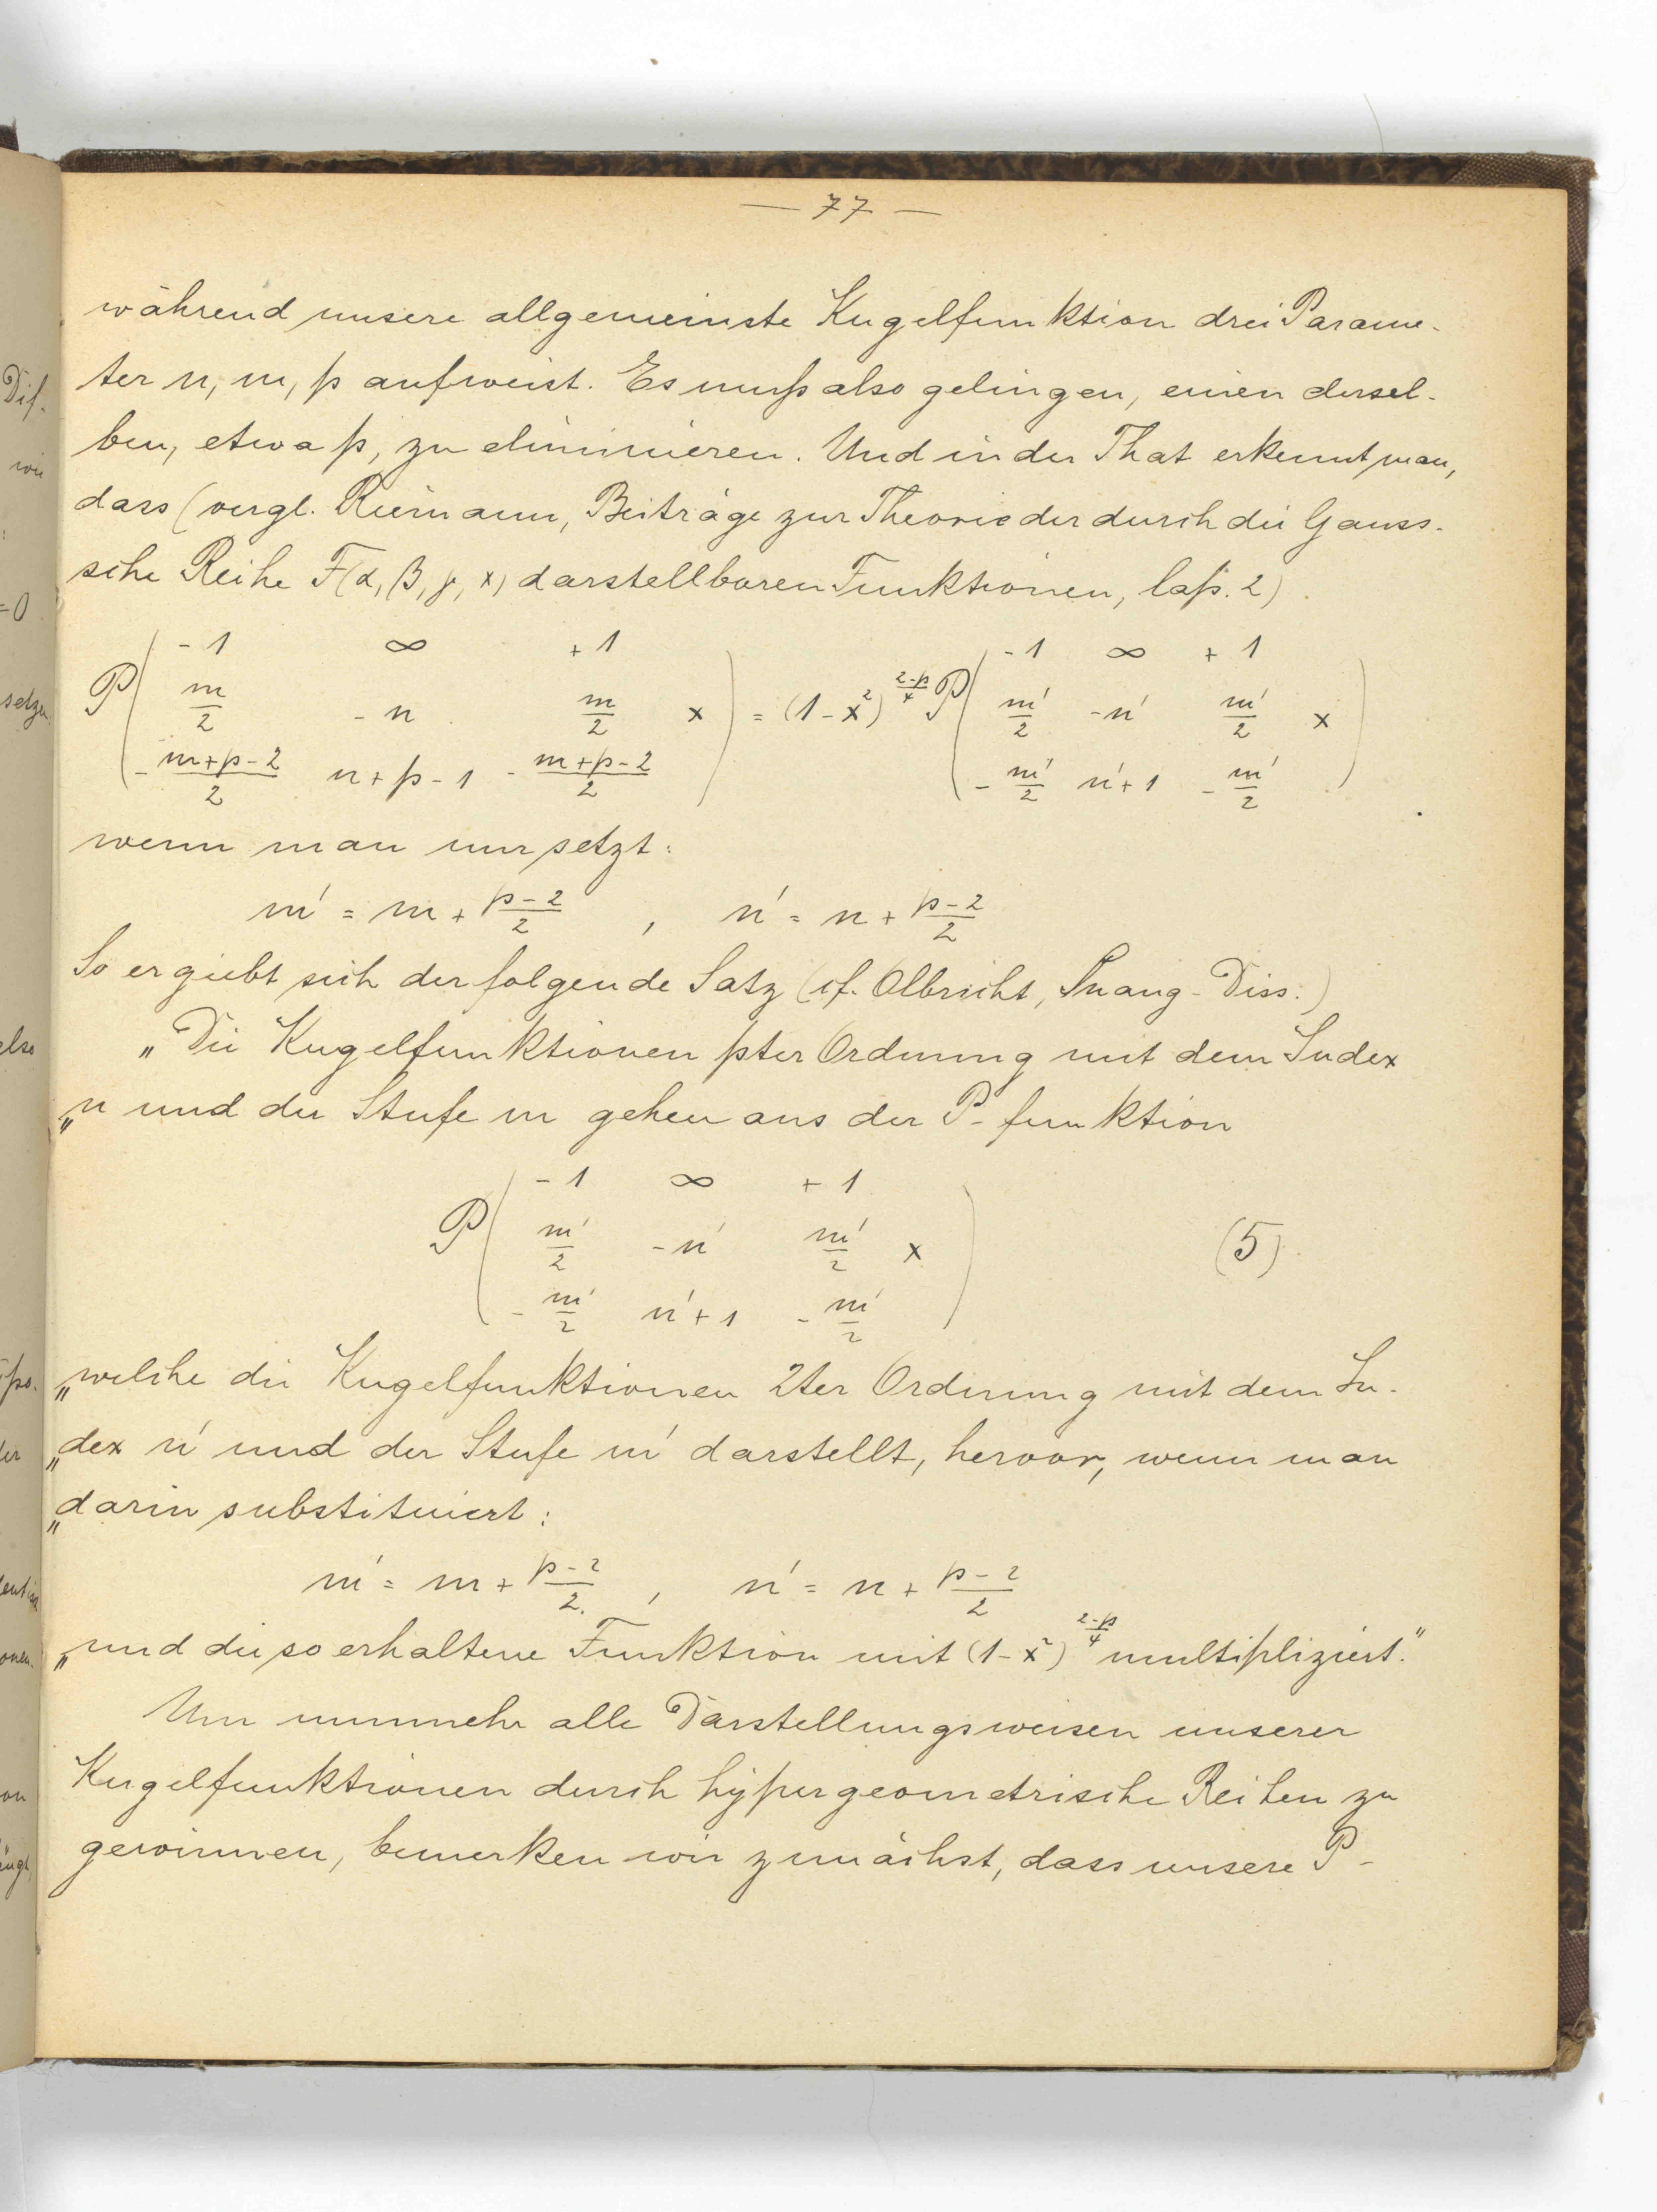 — 77 —
während unsere allgemeinste Kugelfunktion drei Parame-
ter n, m, p aufweist. Es muß also gelingen, einen dersel-
ben, etwa p, zu eliminieren. Und in der That erkennt man,
dass (vergl. Riemann, Beiträge zur Theorie der durch die Gauss-
sche Reihe F(α, β, γ, x) darstellbaren Funktionen, Cap. 2)
P( -1 ∞ +1
m/2 -n m/2 x ) = (1-x²)^{(2-p)/4} P( -1 ∞ +1
m'/2 -n' m'/2 x )
-(m+p-2)/2 n+p-1 -(m+p-2)/2 -m'/2 n'+1 -m'/2
wenn man nur setzt:
m' = m + (p-2)/2 , n' = n + (p-2)/2
So ergiebt sich der folgende Satz (cf. Olbricht, Inaug-Diss.)
„Die Kugelfunktionen pter Ordnung mit dem Index
„n und der Stufe m gehen aus der P-funktion
P( -1 ∞ +1
m'/2 -n' m'/2 x ) (5)
-m'/2 n'+1 -m'/2
„welche die Kugelfunktionen 2ter Ordnung mit dem In-
„dex n' und der Stufe m' darstellt, hervor, wenn man
„darin substituiert:
m' = m + (p-2)/2 , n' = n + (p-2)/2
„und die so erhaltene Funktion mit (1-x²)^{(2-p)/4} multipliziert."
Um nunmehr alle Darstellungsweisen unserer
Kugelfunktionen durch hypergeometrische Reihen zu
gewinnen, bemerken wir zunächst, dass unsere P-